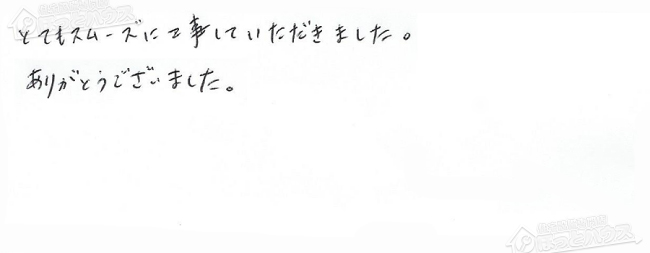 とてもスムーズに工事していただきました。
ありがとうございました。